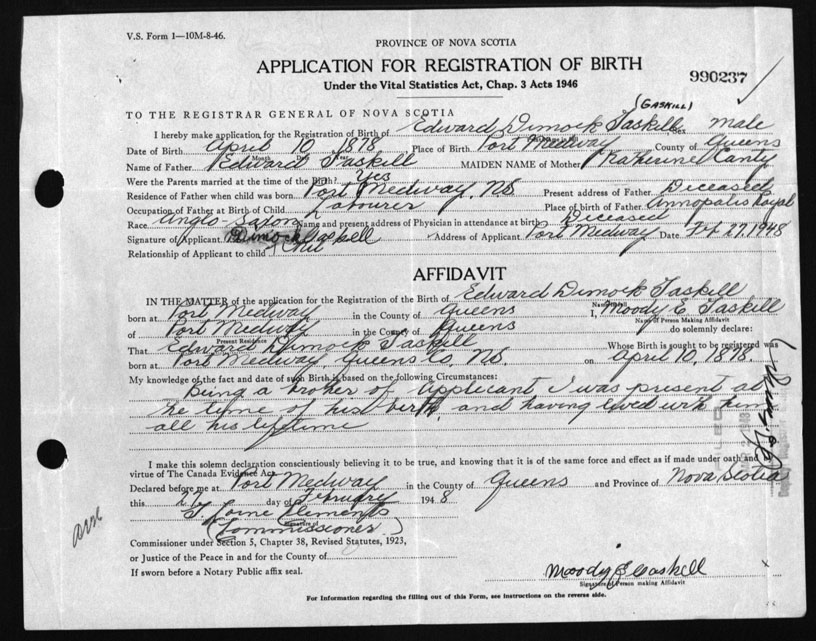 V.S. Form 1—10M-8-46.
PROVINCE OF NOVA SCOTIA
APPLICATION FOR REGISTRATION OF BIRTH
990237
Under the Vital Statistics Act, Chap. 3 Acts 1946
(GASKILL)
TO THE REGISTRAR GENERAL OF NOVA SCOTIA
I hereby make application for the Registration of Birth of Edward Dimock Gaskill Sex male
Date of Birth April 10 1878 Place of Birth Port Medway County of Queens
Month Day Year
Name of Father Edward Gaskill MAIDEN NAME of Mother Katherine Canty
Were the Parents married at the time of the Birth? Yes
Residence of Father when child was born Port Medway, N.S. Present address of Father Deceased
Occupation of Father at Birth of Child Labourer Place of birth of Father Annopalis Royal
Race Anglo-Saxon Name and present address of Physician in attendance at birth Diceased
Signature of Applicant Dimock Gaskell Address of Applicant Port Medway Date Feb 27, 1948
Relationship of Applicant to child
AFFIDAVIT
IN THE MATTER of the application for the Registration of the Birth of Edward Dimock Gaskill
born at Port Medway in the County of Queens I, Moody E Gaskill
Name of Person Making Affidavit
of Port Medway in the County of Queens do solemnly declare:
Present Residence
That Edward Dimock Gaskill Whose Birth is sought to be registered was
born at Port Medway, Queens Co, N.S. on April 10, 1878.
My knowledge of the fact and date of such Birth is based on the following Circumstances:
Being a broker of applicant I was present at
the time of his birth, and having lived with him
all his lifetime
I make this solemn declaration conscientiously believing it to be true, and knowing that it is of the same force and effect as if made under oath and
virtue of The Canada Evidence Act.
Declared before me at Port Medway in the County of Queens and Province of Nova Scotia
this 27 day of 1948
Lorne Clements
Signature of
(Commissioner)
Commissioner under Section 5, Chapter 38, Revised Statutes, 1923,
or Justice of the Peace in and for the County of
If sworn before a Notary Public affix seal.
Moody E Gaskell
Signature of Person making Affidavit
For Information regarding the filling out of this Form, see instructions on the reverse side.